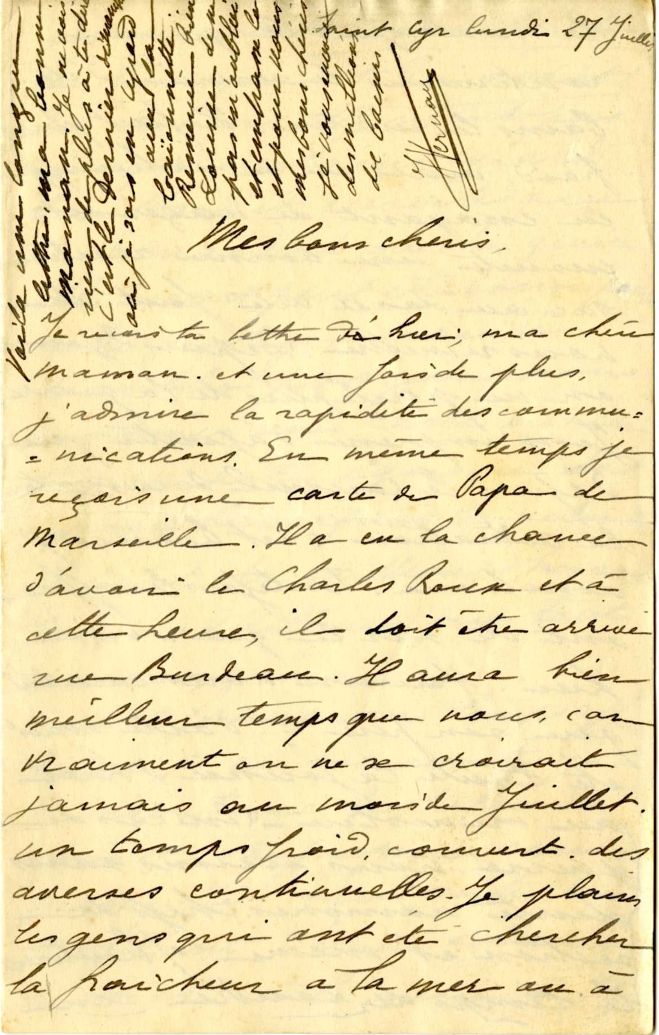 Saint Cyr lundi 27 Juillet
Mes bons chéris,
Je reçois ta lettre d'hier, ma chère
maman. et une fois de plus,
j'admire la rapidité des commu-
-nications. En même temps je
reçois une carte de Papa de
Marseille. Il a eu la chance
d'avoir le Charles Roux et à
cette heure, il doit être arrivé
rue Burdeau. Il aura bien
meilleur temps que nous, car
vraiment on ne se croirait
jamais au mois de Juillet.
un temps froid, couvert. des
averses continuelles. Je plains
les gens qui ont été chercher
la fraîcheur à la mer ou à
Voilà une longue
lettre, ma bonne
maman. Je n'ai
rien de plus à te dire
c'est le dernier dimanche
où je sors en
avec la
baïonnette
Remercie bien
Louise de ne
pas m'oublier
et embrasse la
et pour vous
mes bons chéris
je vous envoie
des millions
de baisers